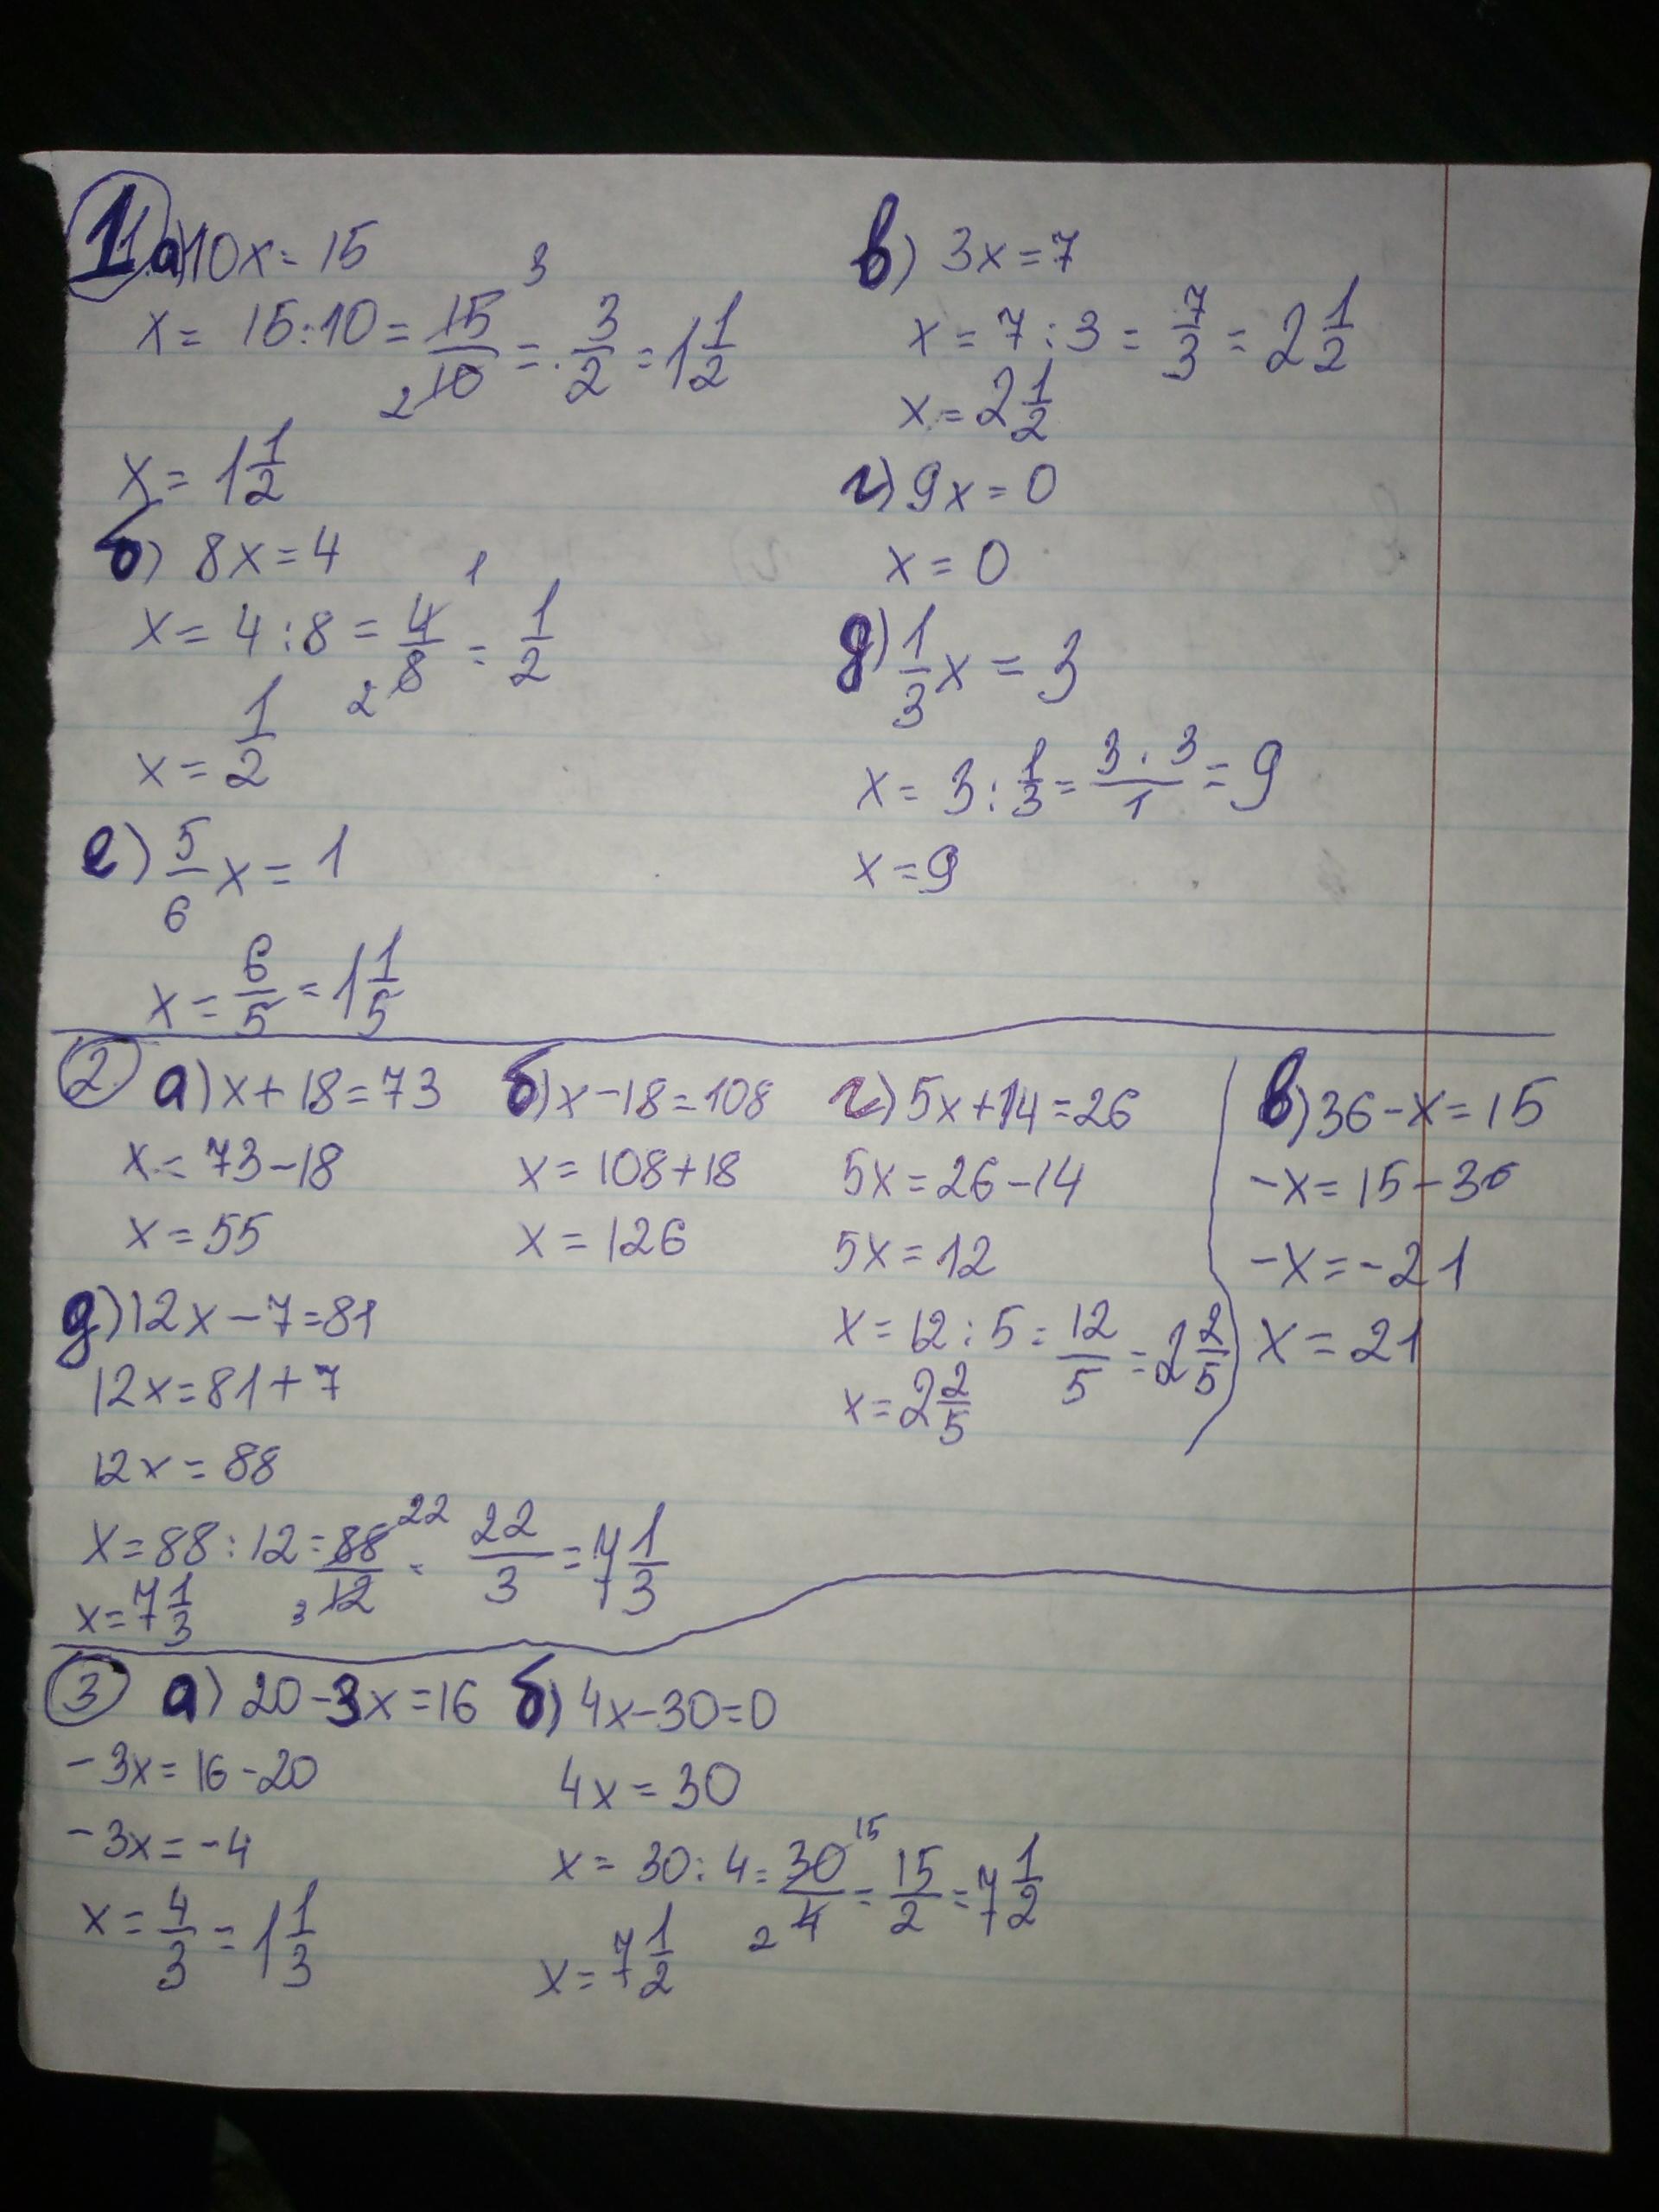 1 а) 10x = 15
x = 15:10 = 15/10 = 3/2 = 1 1/2
x = 1 1/2
б) 8x = 4
x = 4:8 = 4/8 = 1/2
x = 1/2
е) 5/6 x = 1
x = 6/5 = 1 1/5
в) 3x = 7
x = 7:3 = 7/3 = 2 1/2
x = 2 1/2
г) 9x = 0
x = 0
д) 1/3 x = 3
x = 3 : 1/3 = 3·3/1 = 9
x = 9
2 а) x + 18 = 73
x = 73 - 18
x = 55
б) x - 18 = 108
x = 108 + 18
x = 126
г) 5x + 14 = 26
5x = 26 - 14
5x = 12
x = 12 : 5 = 12/5 = 2 2/5
x = 2 2/5
в) 36 - x = 15
-x = 15 - 36
-x = -21
x = 21
д) 12x - 7 = 81
12x = 81 + 7
12x = 88
x = 88 : 12 = 88/12 = 22/3 = 7 1/3
x = 7 1/3
3 а) 20 - 3x = 16
-3x = 16 - 20
-3x = -4
x = 4/3 = 1 1/3
б) 4x - 30 = 0
4x = 30
x = 30 : 4 = 30/4 = 15/2 = 7 1/2
x = 7 1/2